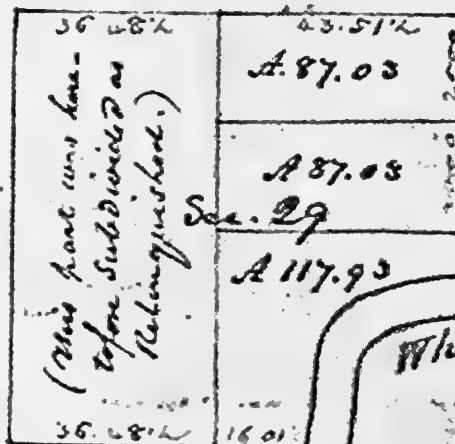 36.48½
43.51½
A. 87.03
A 87.03
Sec. 29
A 117.93
(This part was here-
tofore Subdivided as
Relinquished.)
36.48½
16.01